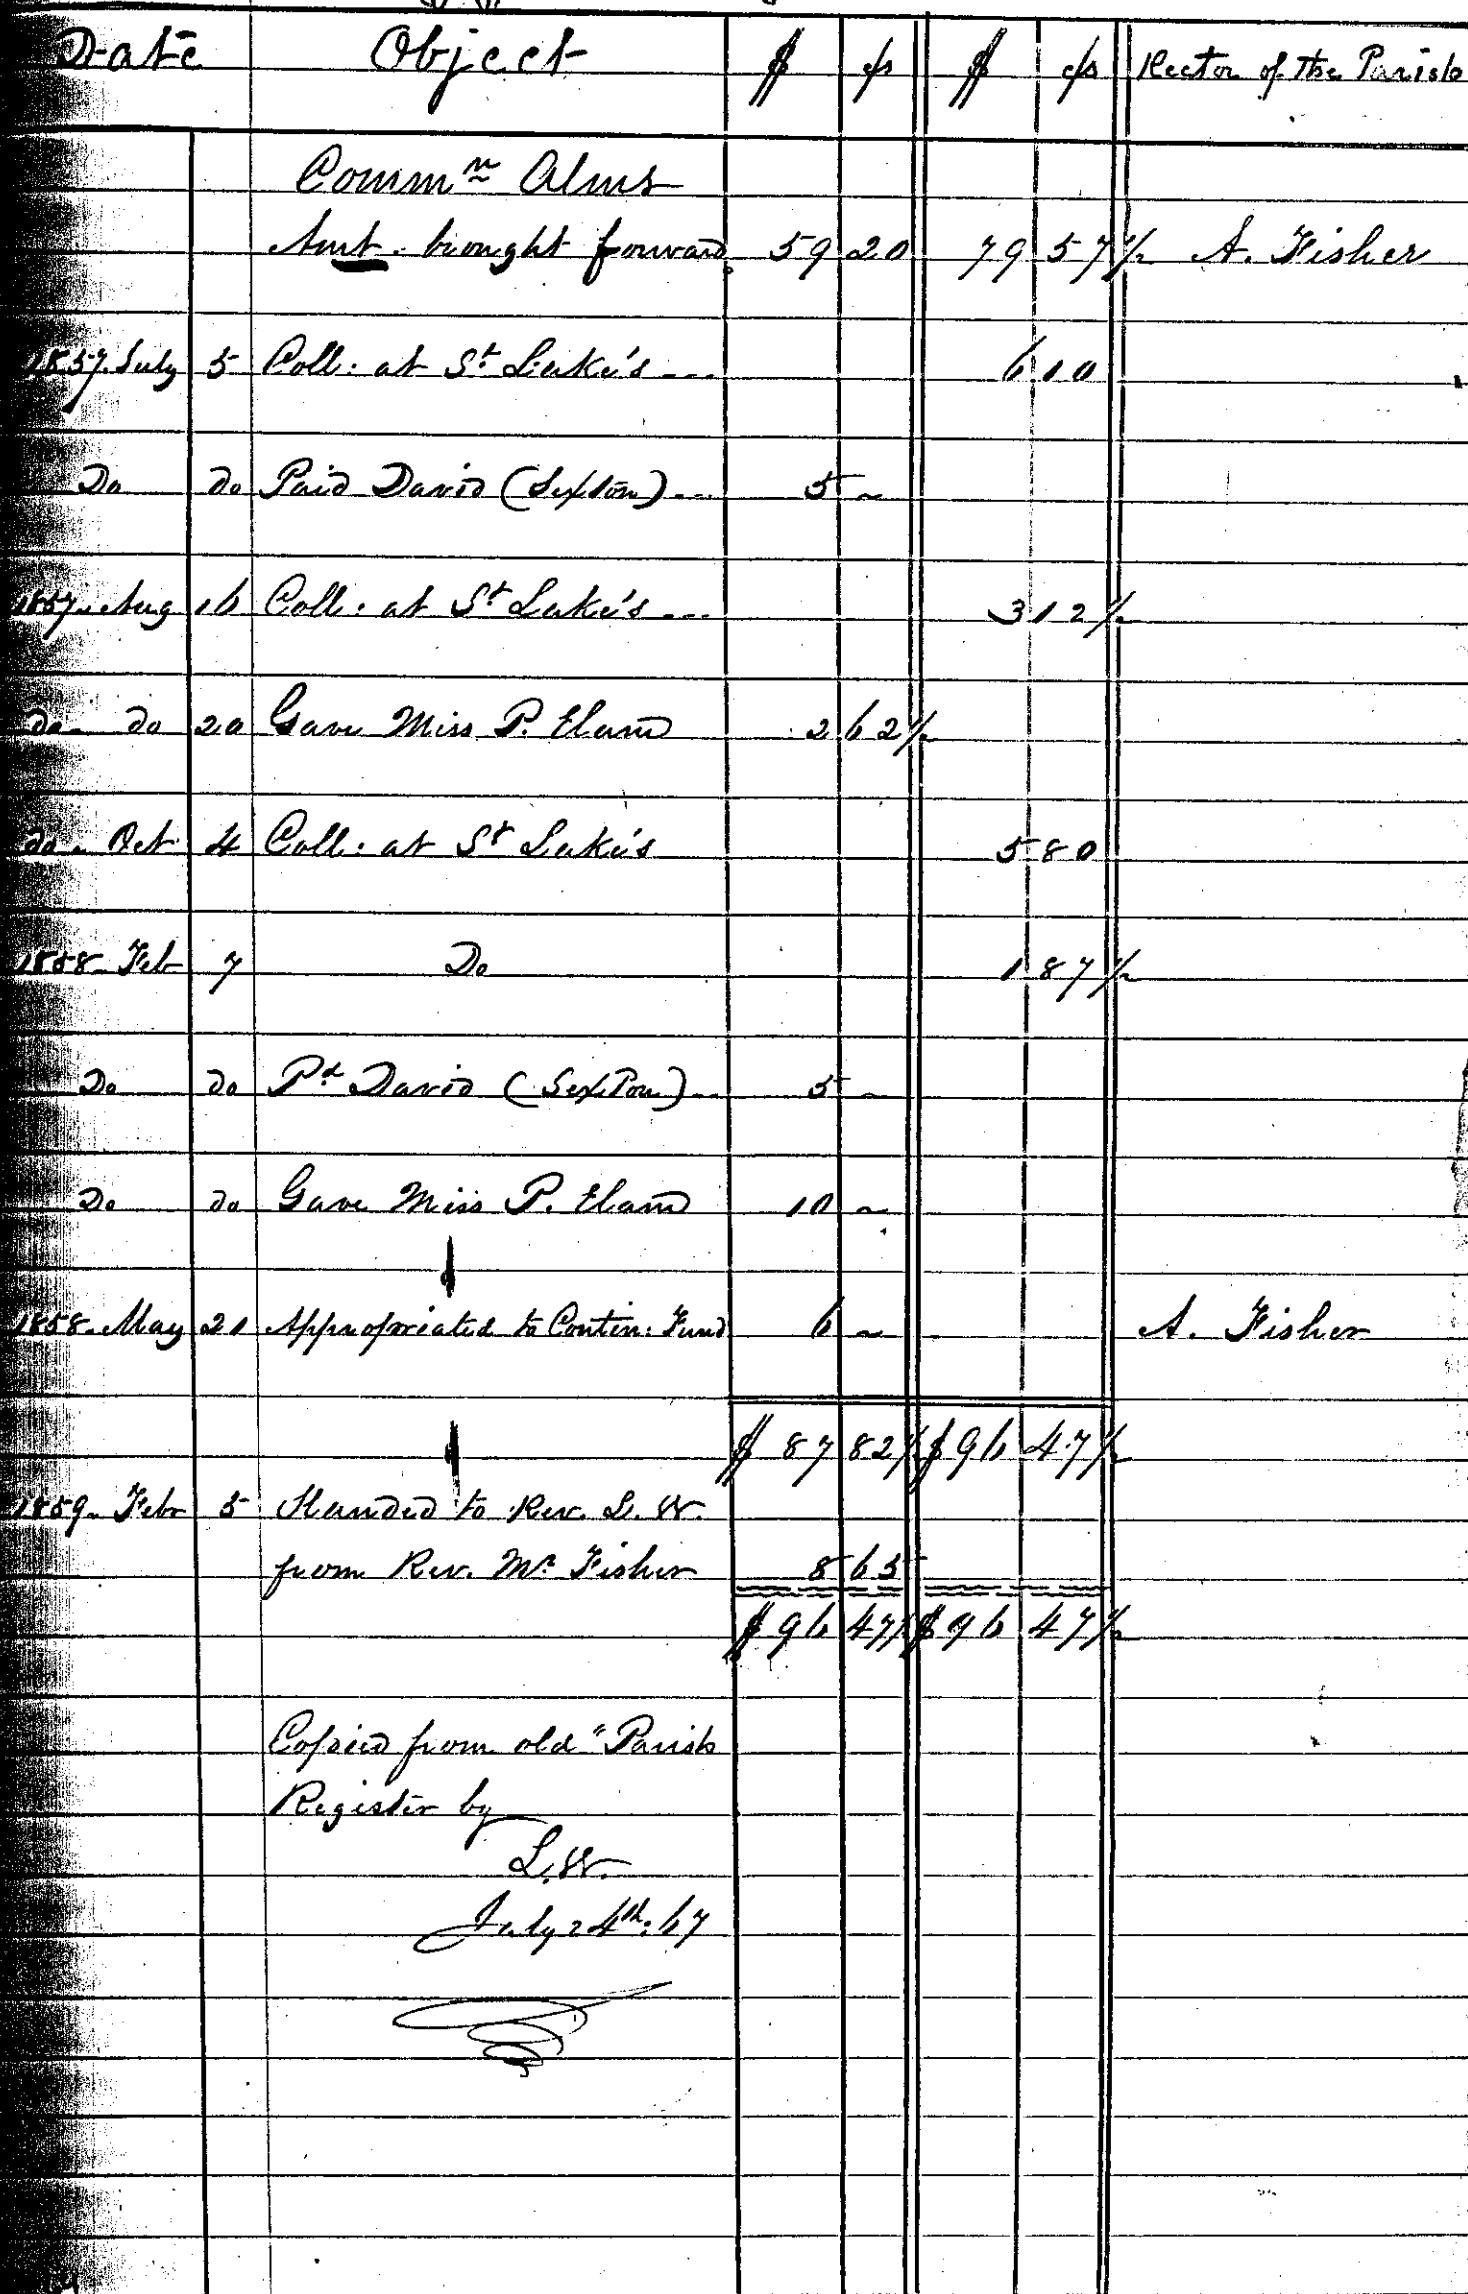 Date Object $ cts $ cts Rector of the Parish
Commn Alms
Amt. brought forward 59 20 79 57½ A. Fisher
1857. July 5 Coll: at St Luke's --- 6 10
Do do Paid David (Sexton) --- 5 ~
1857. Aug 16 Coll: at St Luke's --- 3 12½
do. do 20 Gave Miss P. Elam 2 62½
do. Oct 4 Coll: at St Luke's 5 80
1858 Feb 7 Do 1 87½
Do do Pd David (Sexton) -- 5 ~
Do do Gave Miss P. Elam 10 ~
1858. May 21 Appropriated to Contin: Fund 6 ~ A. Fisher
$ 87 82½ $ 96 47½
1859. Febr 5 Handed to Rev. L. W.
from Rev. Mr Fisher 8 65
$ 96 47½ $ 96 47½
Copied from old "Parish
Register by
L. W.
July 24th: 67